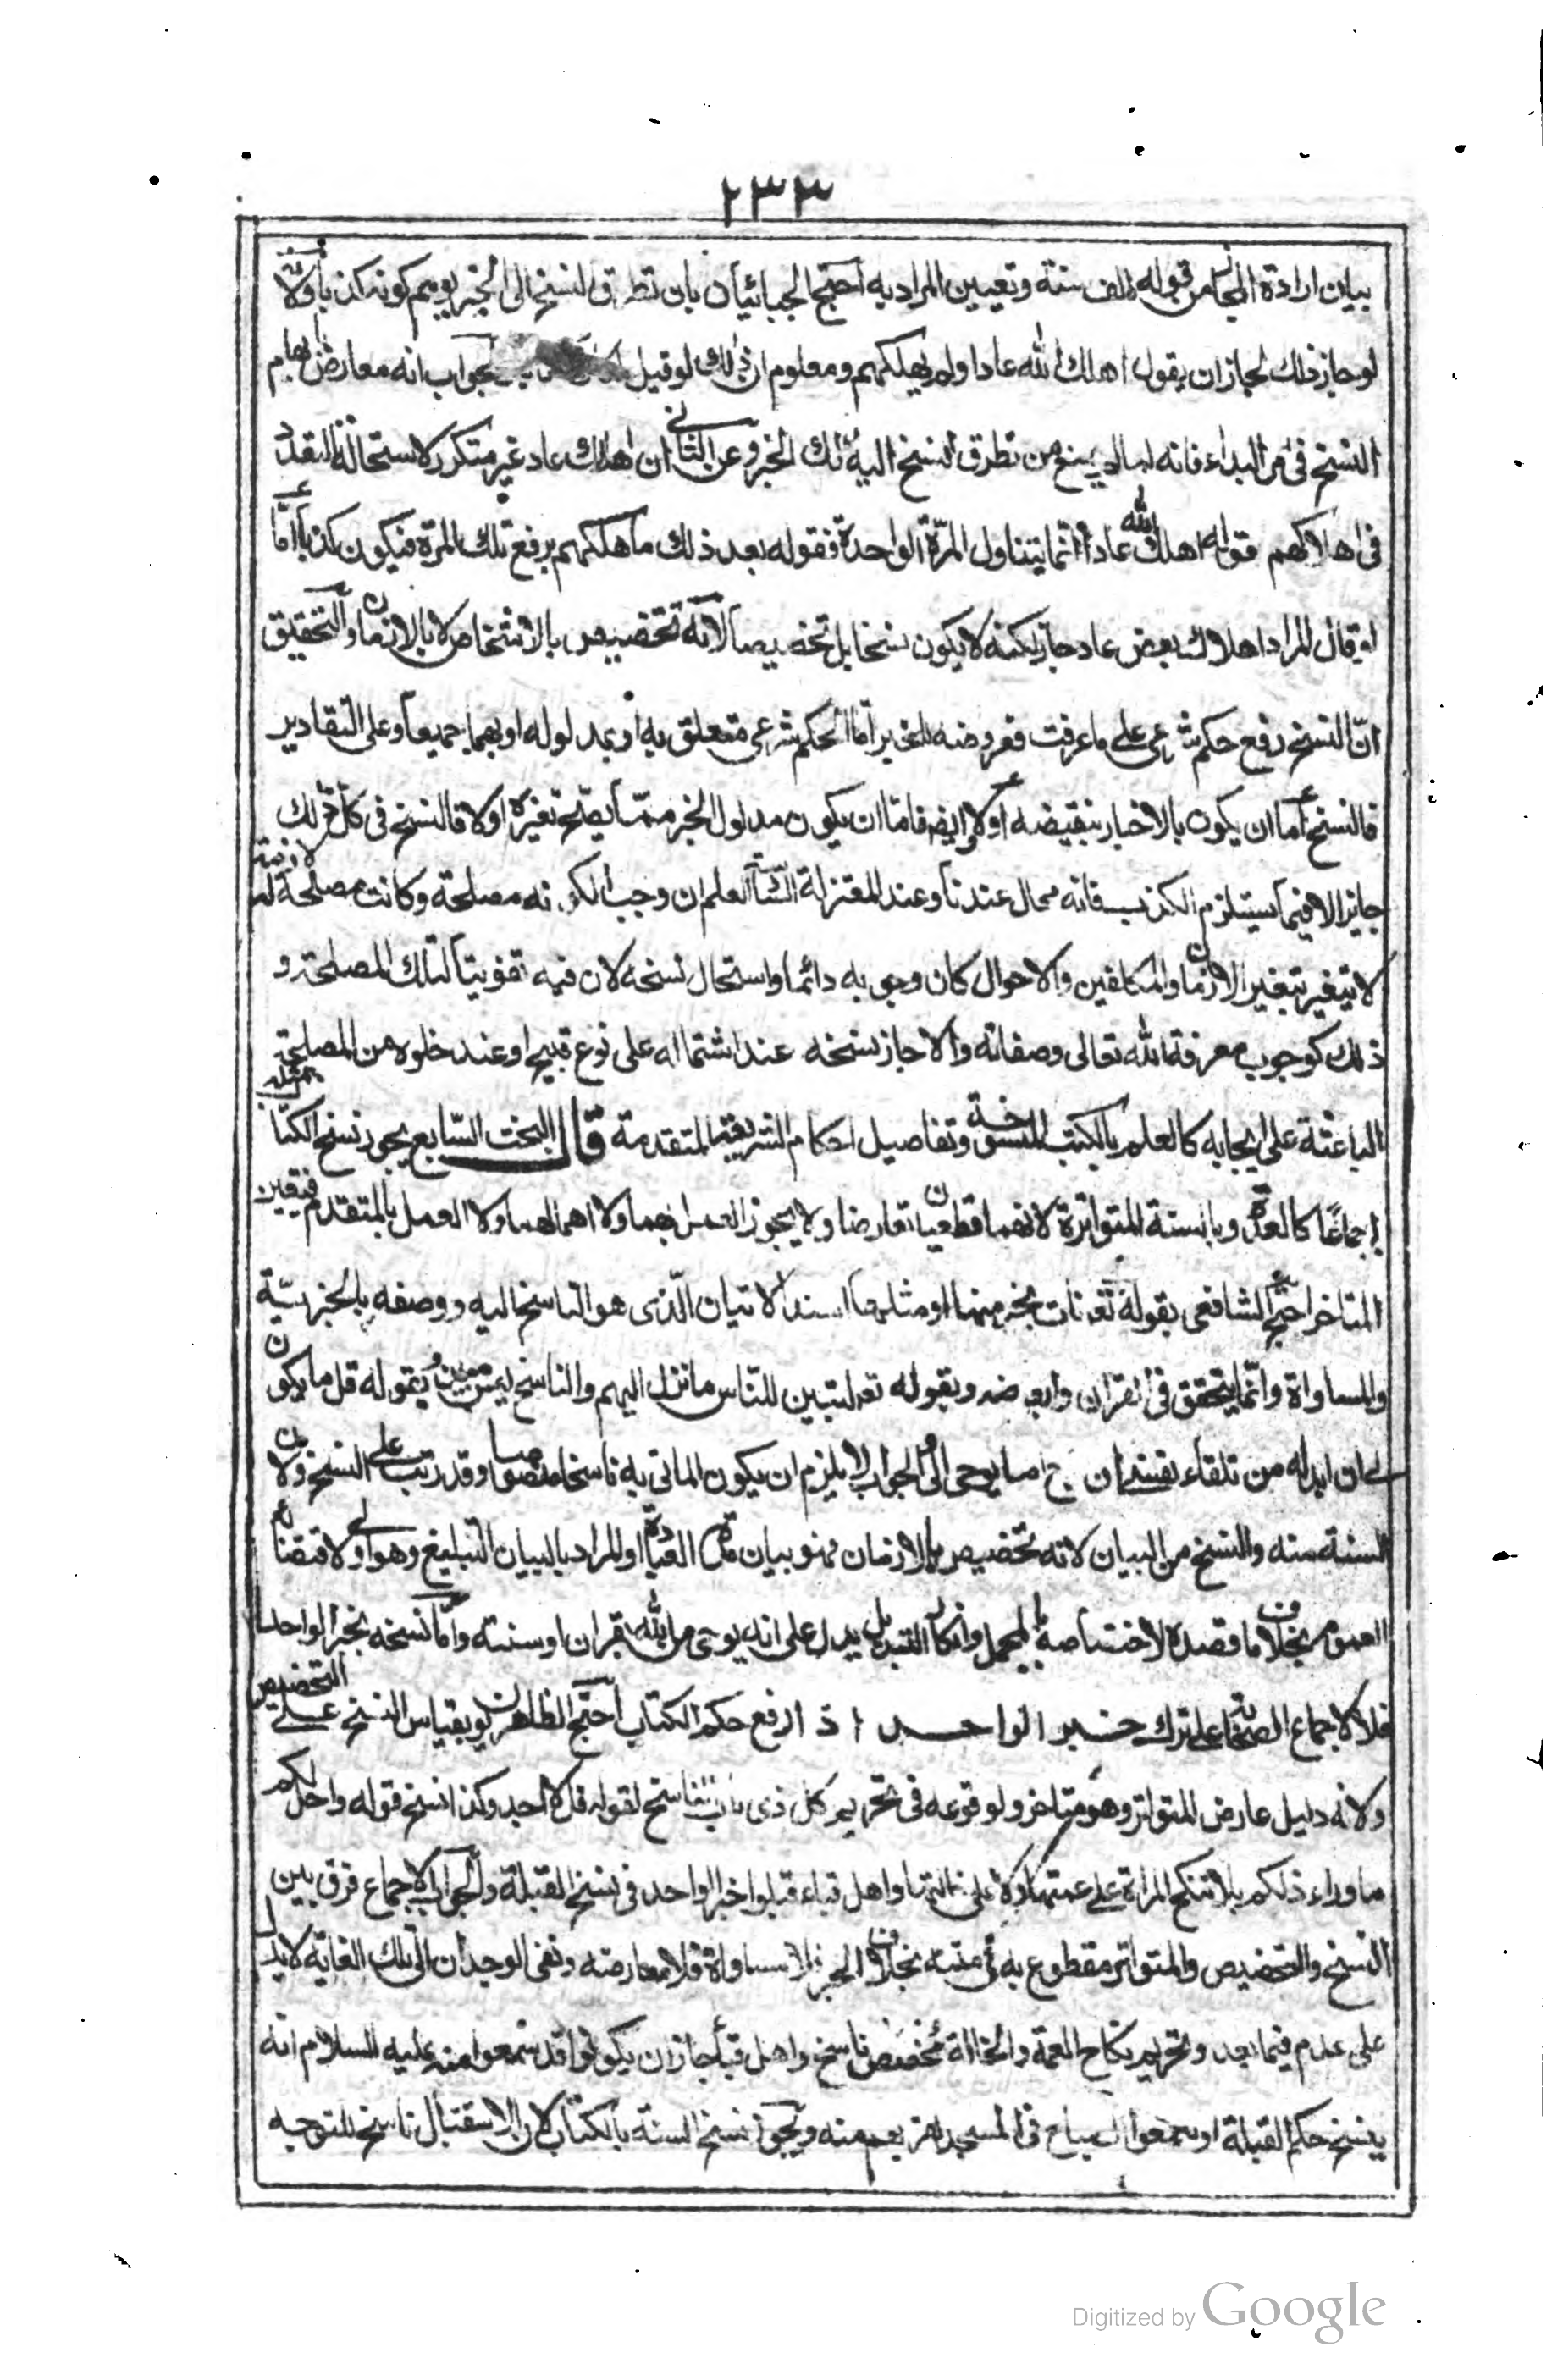 ٢٣٣
بيان ارادة المجاز من قوله الف سنة وتعيين المراد به احتج الجبائيان بان تطرق النسخ الى الخبر يوهم كونه كذبا ولانّه
لو جاز ذلك لجاز ان يقول اهلك الله عادا ولم يهلكهم ومعلوم ان ذلك لو قيل الجواب انه معارض بايهام
النسخ في الامر البداء فانه لما لم يمنع من تطرق النسخ اليه كذلك الخبر وعن الثاني ان اهلاك عاد غير متكرر لاستحالة التعدد
في اهلاكهم فقوله اهلك الله عادا انما يتناول المرّة الواحدة فقوله بعد ذلك ما اهلكهم يرفع تلك المرة فيكون كذبا امّا
لو قال المراد اهلاك بعض عاد جاز لكنه لا يكون نسخا بل تخصيصا لانه تخصيص بالاشخاص لا بالازمان والتحقيق
انّ النسخ رفع حكم شرعي على ما عرفت فعروضه للخبر امّا لحكم شرعي متعلق به او بمدلوله او بهما جميعا وعلى التقادير
فالنسخ امّا ان يكون بالاخبار بنقيضه او لا وايضا فامّا ان يكون مدلول الخبر ممّا يصحّ تغيره او لا فالنسخ في كل ذلك
جايز الا فيما يستلزم الكذب فانه محال عندنا وعند المعتزلة الثالث العلم ان وجب لكونه مصلحة وكانت مصلحة لازمة
لا تتغير بتغير الازمان والمكلفين والاحوال كان وجوبه دائما واستحال نسخه لان فيه تفويتا لتلك المصلحة و
ذلك كوجوب معرفة الله تعالى وصفاته والا جاز نسخه عند اشتماله على نوع قبيح او عند خلوه من المصلحة
الباعثة على ايجابه كالعلم بالكتب المنسوخة وتفاصيل احكام الشريعة المتقدمة قال البحث السّابع يجوز نسخ الكتاب بمثله
اجماعًا كالعدّة وبالسنة المتواترة لانهما قطعيان تعارضا ولا يجوز العمل بهما ولا اهمالهما ولا العمل بالمتقدم فيتعين
المتاخر احتج الشافعي بقوله تع نات بخير منها او مثلها اسند الاتيان الّذي هو الناسخ اليه ووصفه بالخيريّة
والمساواة وانّما يتحقق في القران وايضا وبقوله تع لتبين للناس ما نزل اليهم والناسخ ليس مبين وبقوله قل ما يكون
لي ان ابدله من تلقاء نفسي ان اتبع الا ما يوحى الىّ والجواب لا يلزم ان يكون الماتي به ناسخا منصوصا وقد رتب على النسخ ولان
السنة منه والنسخ من البيان لانه تخصيص بالازمان فهو بيان مدة العبادة او المراد بالبيان التبليغ وهو اولى لاقتضائه
العموم بخلاف ما قصده لاختصاصه بالمجمل وانكار التبديل يدل على انه يوحى من الله بقران او سنته وامّا نسخه بخبر الواحد
فلا لاجماع الصحابة على ترك خبر الواحد اذا رفع حكم الكتاب احتج الظاهريون بقياس النسخ على التخصيص
ولانه دليل عارض المتواتر وهو متاخر ولوقوعه في تحريم كل ذي ناب ناسخ لقوله قل لا اجد وكذا نسخ قوله واحل لكم
ما وراء ذلكم بلا تنكح المراة على عمتها ولا على خالتها واهل قباء قبلوا خبر الواحد في نسخ القبلة والجواب الاجماع فرق بين
النسخ والتخصيص والمتواتر مقطوع به في متنه بخلاف الخبر فلا مساواة فلا معارضة ونفى الوجدان الى تلك الغاية لا يدل
على عدم فيما بعد وتحريم نكاح العمة والخالة مُخصّص لا ناسخ واهل قبا جاز ان يكونوا قد سمعوا منه عليه السلام انه
ينسخ حكم القبلة او سمعوا الصياح في المسجد لقربهم منه ويجوز نسخ السنة بالكتاب لان الاستقبال ناسخ للتوجه
Digitized by Google